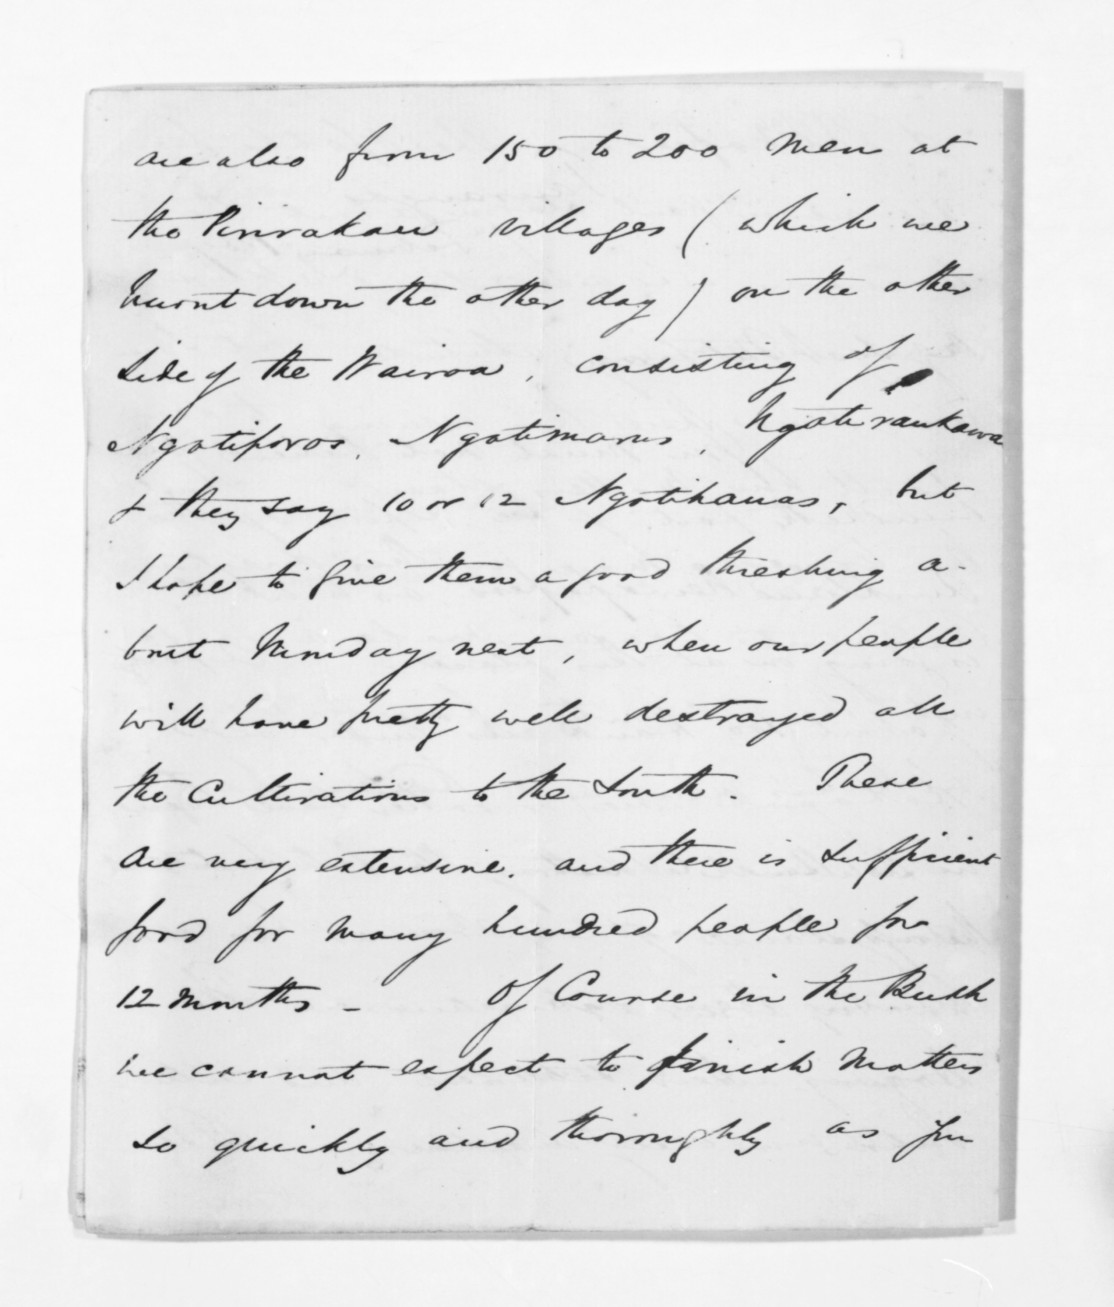 are also from 150 to 200 men at
the Pirirakau villages (which we
burnt down the other day) on the other
side of the Wairoa, consisting of
Ngatiporos, Ngatimarus, Ngatiraukawa
& they say 10 or 12 Ngatihauas, but
I hope to give them a good threshing a-
bout Monday next, when our people
will have pretty well destroyed all
the Cultivations to the South. These
are very extensive, and there is sufficient
food for many hundred people for
12 months - Of Course in the Bush
we cannot expect to finish matters
so quickly and thoroughly as you